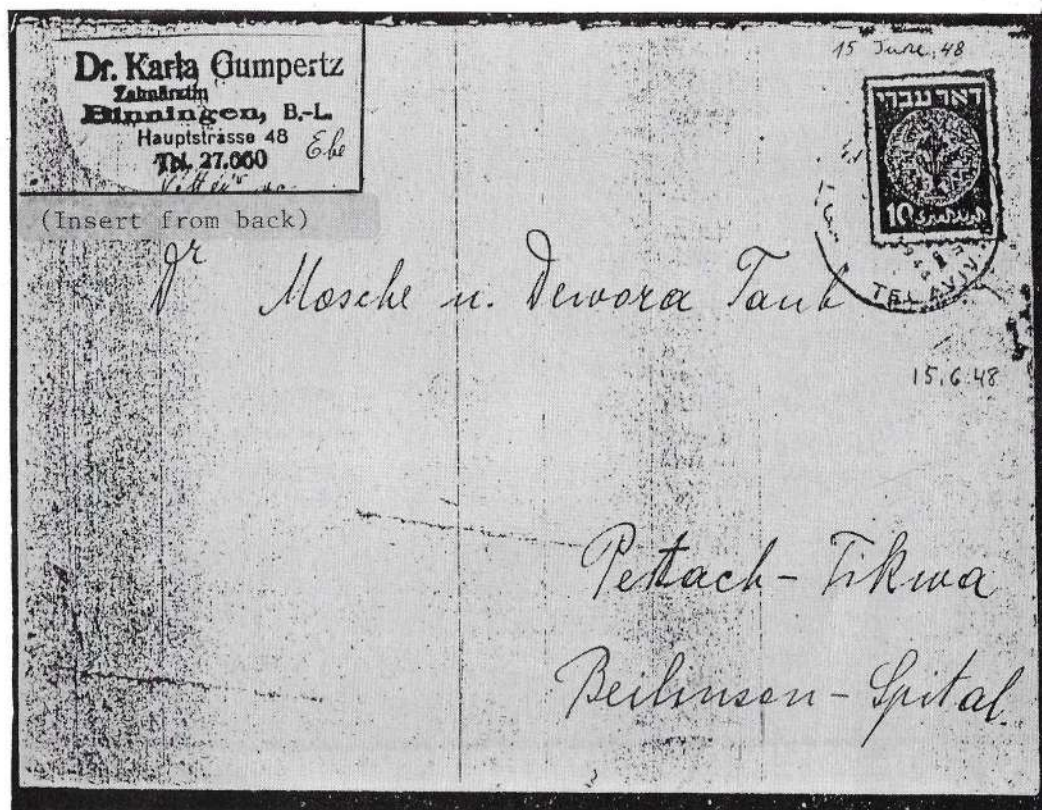 Dr. Karla Gumpertz
Zahnärztin
Binningen, B.-L.
Hauptstrasse 48
Tel. 27.660
(Insert from back)
15 June, 48
דאר עברי
10
TEL AVIV
15.6.48
Dr Mosche u. Dewora Taub
Pettach-Tikwa
Beilinson-Spital.